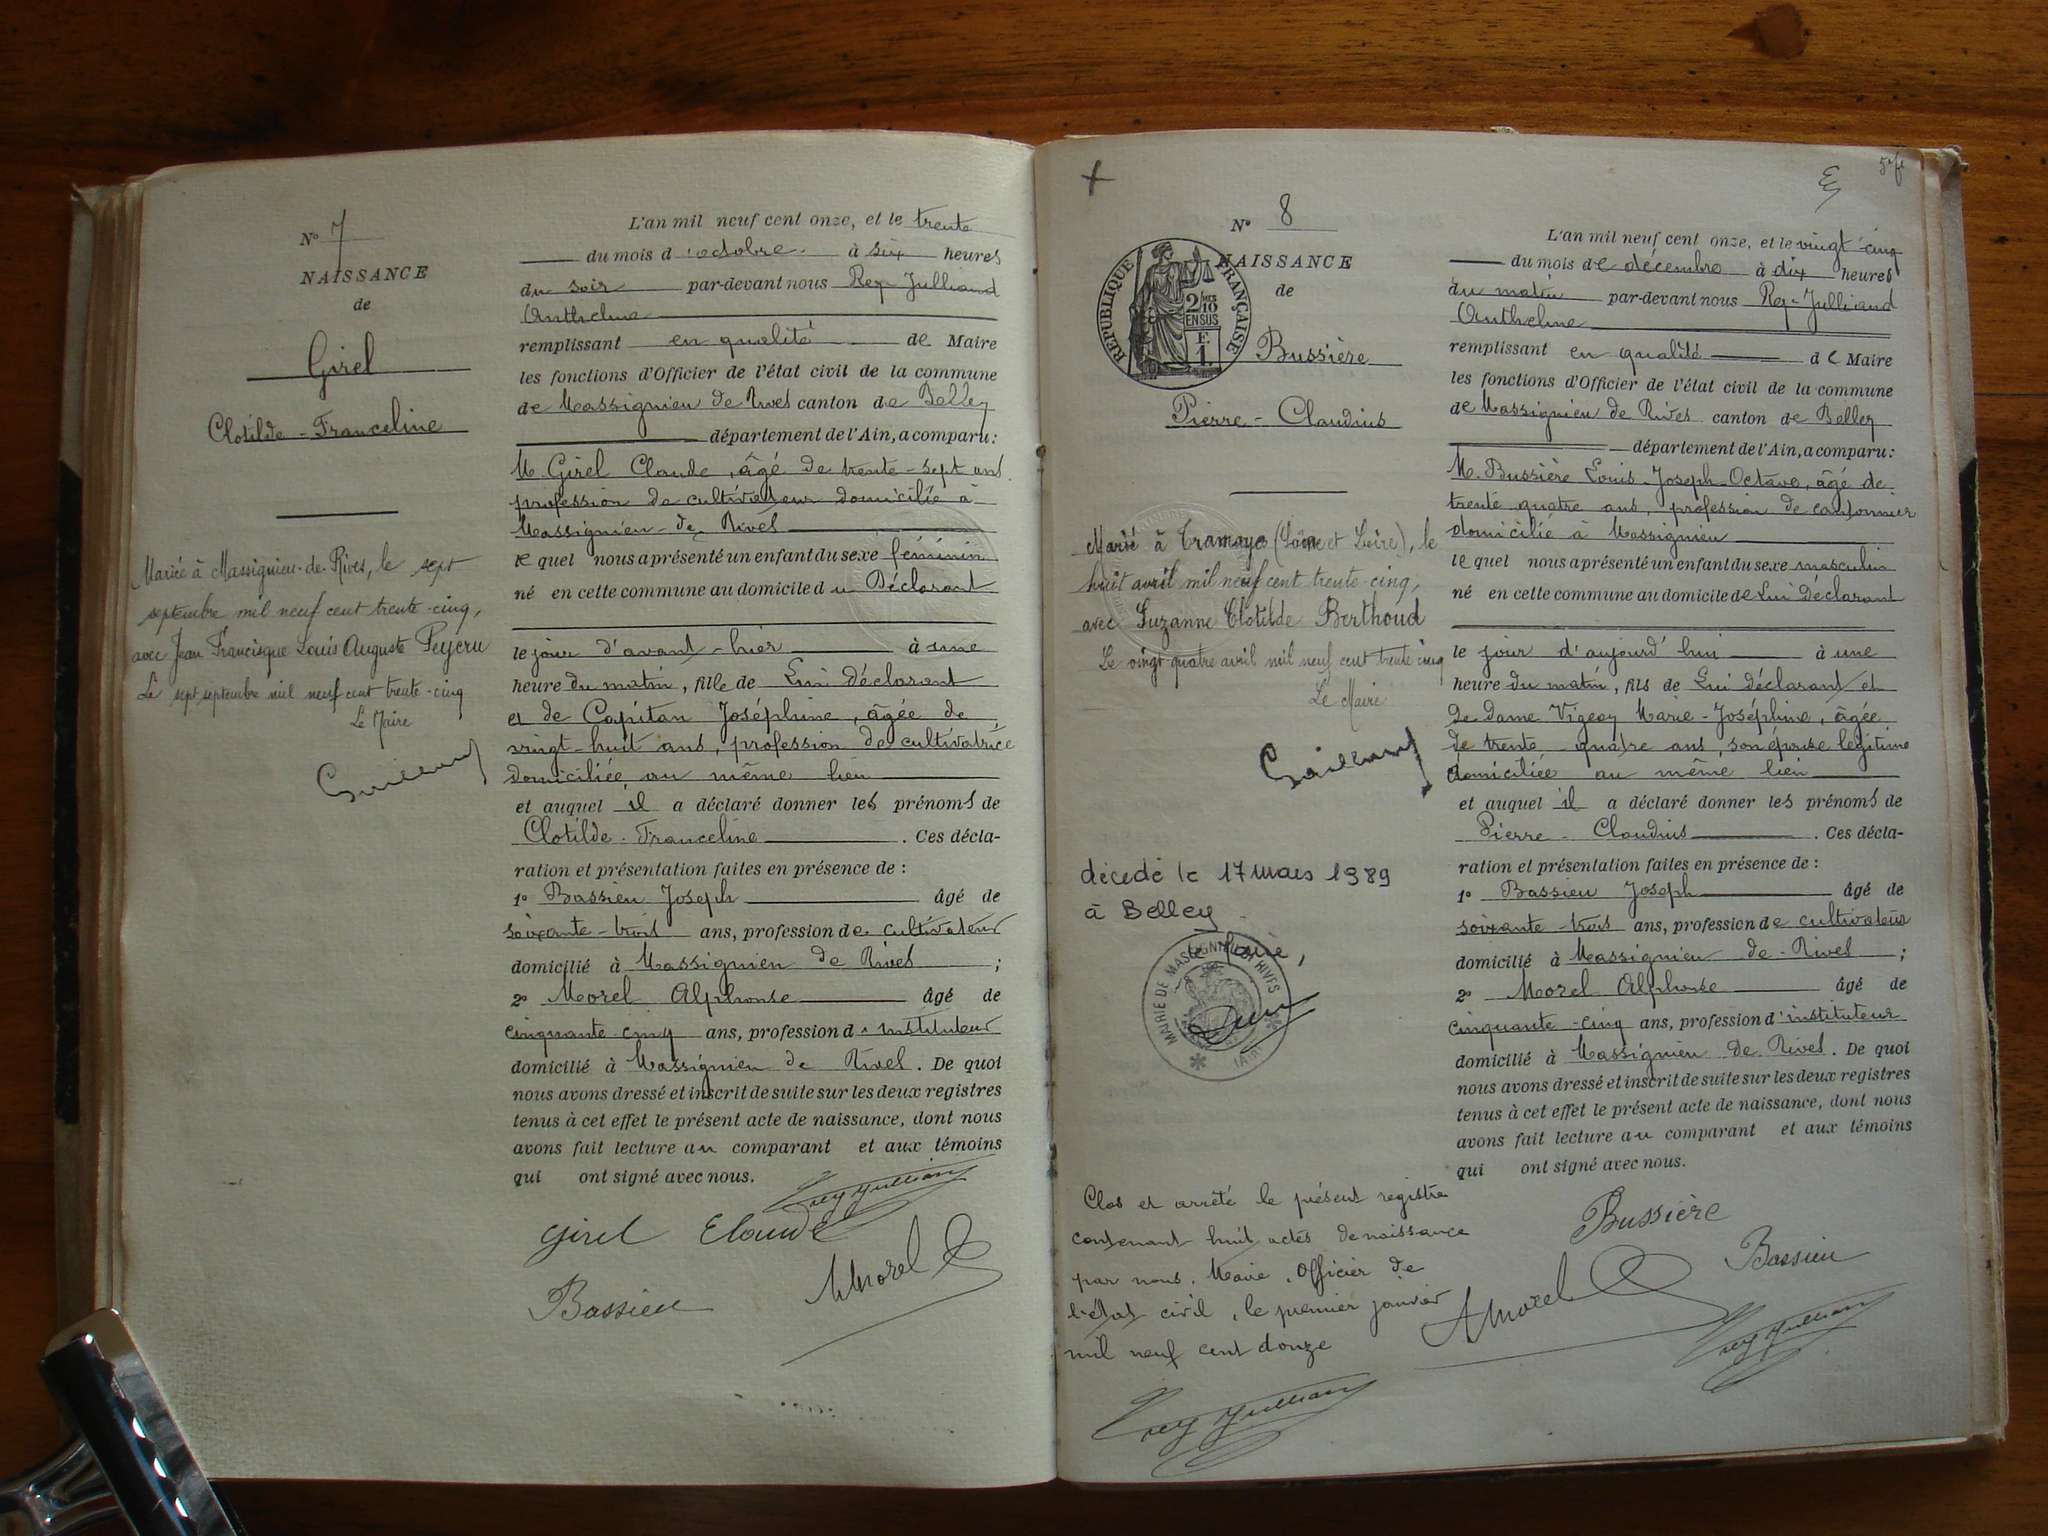 N° 7
NAISSANCE
de
Girel
Clotilde-Franceline
Mariée à Massignieu-de-Rives, le sept
septembre mil neuf cent trente-cinq,
avec Jean Francisque Louis Auguste Peyeru
Le sept septembre mil neuf cent trente-cinq
Le Maire
L'an mil neuf cent onze, et le trente
du mois d'octobre à six heures
du soir par-devant nous Rey-Julliand
Anthelme
remplissant en qualité de Maire
les fonctions d'Officier de l'état civil de la commune
de Massignieu de Rives canton de Belley
département de l'Ain, a comparu:
M. Girel Claude, âgé de trente-sept ans
profession de cultivateur domicilié à
Massignieu-de Rives
le quel nous a présenté un enfant du sexe féminin
né en cette commune au domicile du Déclarant
le jour d'avant-hier à une
heure du matin, fille de Lui déclarant
et de Capitan Joséphine, âgée de
vingt-huit ans, profession de cultivatrice
domiciliée au même lieu
et auquel il a déclaré donner les prénoms de
Clotilde-Franceline. Ces décla-
ration et présentation faites en présence de :
1° Bassieu Joseph âgé de
soixante-trois ans, profession de cultivateur
domicilié à Massignieu de Rives ;
2° Morel Alphonse âgé de
cinquante cinq ans, profession d'instituteur
domicilié à Massignieu de Rives. De quoi
nous avons dressé et inscrit de suite sur les deux registres
tenus à cet effet le présent acte de naissance, dont nous
avons fait lecture au comparant et aux témoins
qui ont signé avec nous.
Rey Julliand
Girel Claude
AMorel
Bassieu
N° 8
NAISSANCE
de
RÉPUBLIQUE FRANÇAISE
2/10
EN SUS
F.
1.
Bussière
Pierre-Claudius
Marié à Tramayes (Saône et Loire), le
huit avril mil neuf cent trente-cinq,
avec Suzanne Clotilde Berthoud
Le vingt quatre avril mil neuf cent trente cinq
Le Maire
décédé le 17 mars 1989
à Belley
le Maire,
MAIRIE DE MASSIGNIEU DE RIVES
(Ain)
Clos et arrêté le présent registre
contenant huit actes de naissance
par nous, Maire, Officier de
l'état civil, le premier janvier
mil neuf cent douze
Rey Julliand
L'an mil neuf cent onze, et le vingt-cinq
du mois de décembre à dix heures
du matin par-devant nous Rey-Julliand
Anthelme
remplissant en qualité de Maire
les fonctions d'Officier de l'état civil de la commune
de Massignieu de Rives canton de Belley
département de l'Ain, a comparu:
M. Bussière Louis-Joseph-Octave, âgé de
trente quatre ans, profession de cantonnier
domicilié à Massignieu
le quel nous a présenté un enfant du sexe masculin
né en cette commune au domicile de Lui Déclarant
le jour d'aujourd'hui à une
heure du matin, fils de Lui déclarant et
de dame Vigeoy Marie-Joséphine, âgée
de trente-quatre ans, son épouse légitime
domiciliée au même lieu
et auquel il a déclaré donner les prénoms de
Pierre-Claudius. Ces décla-
ration et présentation faites en présence de :
1° Bassieu Joseph âgé de
soixante-trois ans, profession de cultivateur
domicilié à Massignieu de-Rives ;
2° Morel Alphonse âgé de
cinquante-cinq ans, profession d'instituteur
domicilié à Massignieu de Rives. De quoi
nous avons dressé et inscrit de suite sur les deux registres
tenus à cet effet le présent acte de naissance, dont nous
avons fait lecture au comparant et aux témoins
qui ont signé avec nous.
Bussière
Bassieu
AMorel
Rey Julliand